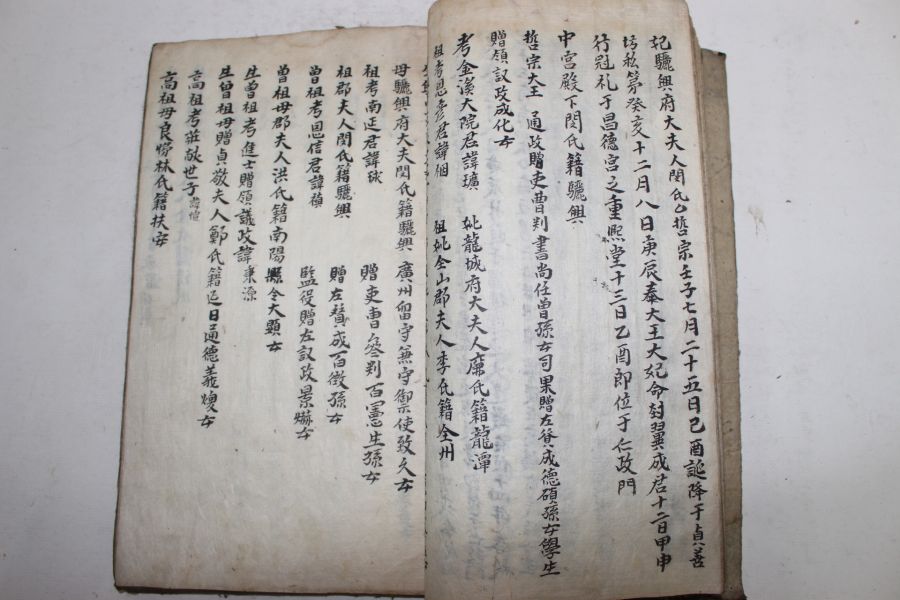 妃驪興府大夫人閔氏哲宗壬子七月二十五日己酉誕降于貞善
坊私第癸亥十二月八日庚辰奉大王大妃命封翼成君十二日甲申
行冠礼于昌德宮之重熙堂十三日乙酉即位于仁政門
中宮殿下閔氏籍驪興
哲宗大王 通政贈吏曹判書尚任曾孫女司果贈左賛成德碩孫女學生
贈領議政成化女
考全溪大院君諱㼅 妣龍城府大夫人廉氏籍龍潭
祖考恩彦君諱䄄 祖妣全山郡夫人李氏籍全州
母驪興府大夫閔氏籍驪興 廣州留守兼守禦使致久女
祖考南延君諱球 贈吏曹參判百憲生孫女
祖郡夫人閔氏籍驪興 贈左賛成百徵孫女
曾祖考恩信君諱禛 監役贈左議政景爀女
曾祖母郡夫人洪氏籍南陽 縣令大顯女
生曾祖考進士贈領議政諱秉源
生曾祖母贈貞敬夫人鄭氏籍延日通德羲煥女
高祖考莊献世子諱愃
高祖母良娣林氏籍扶安